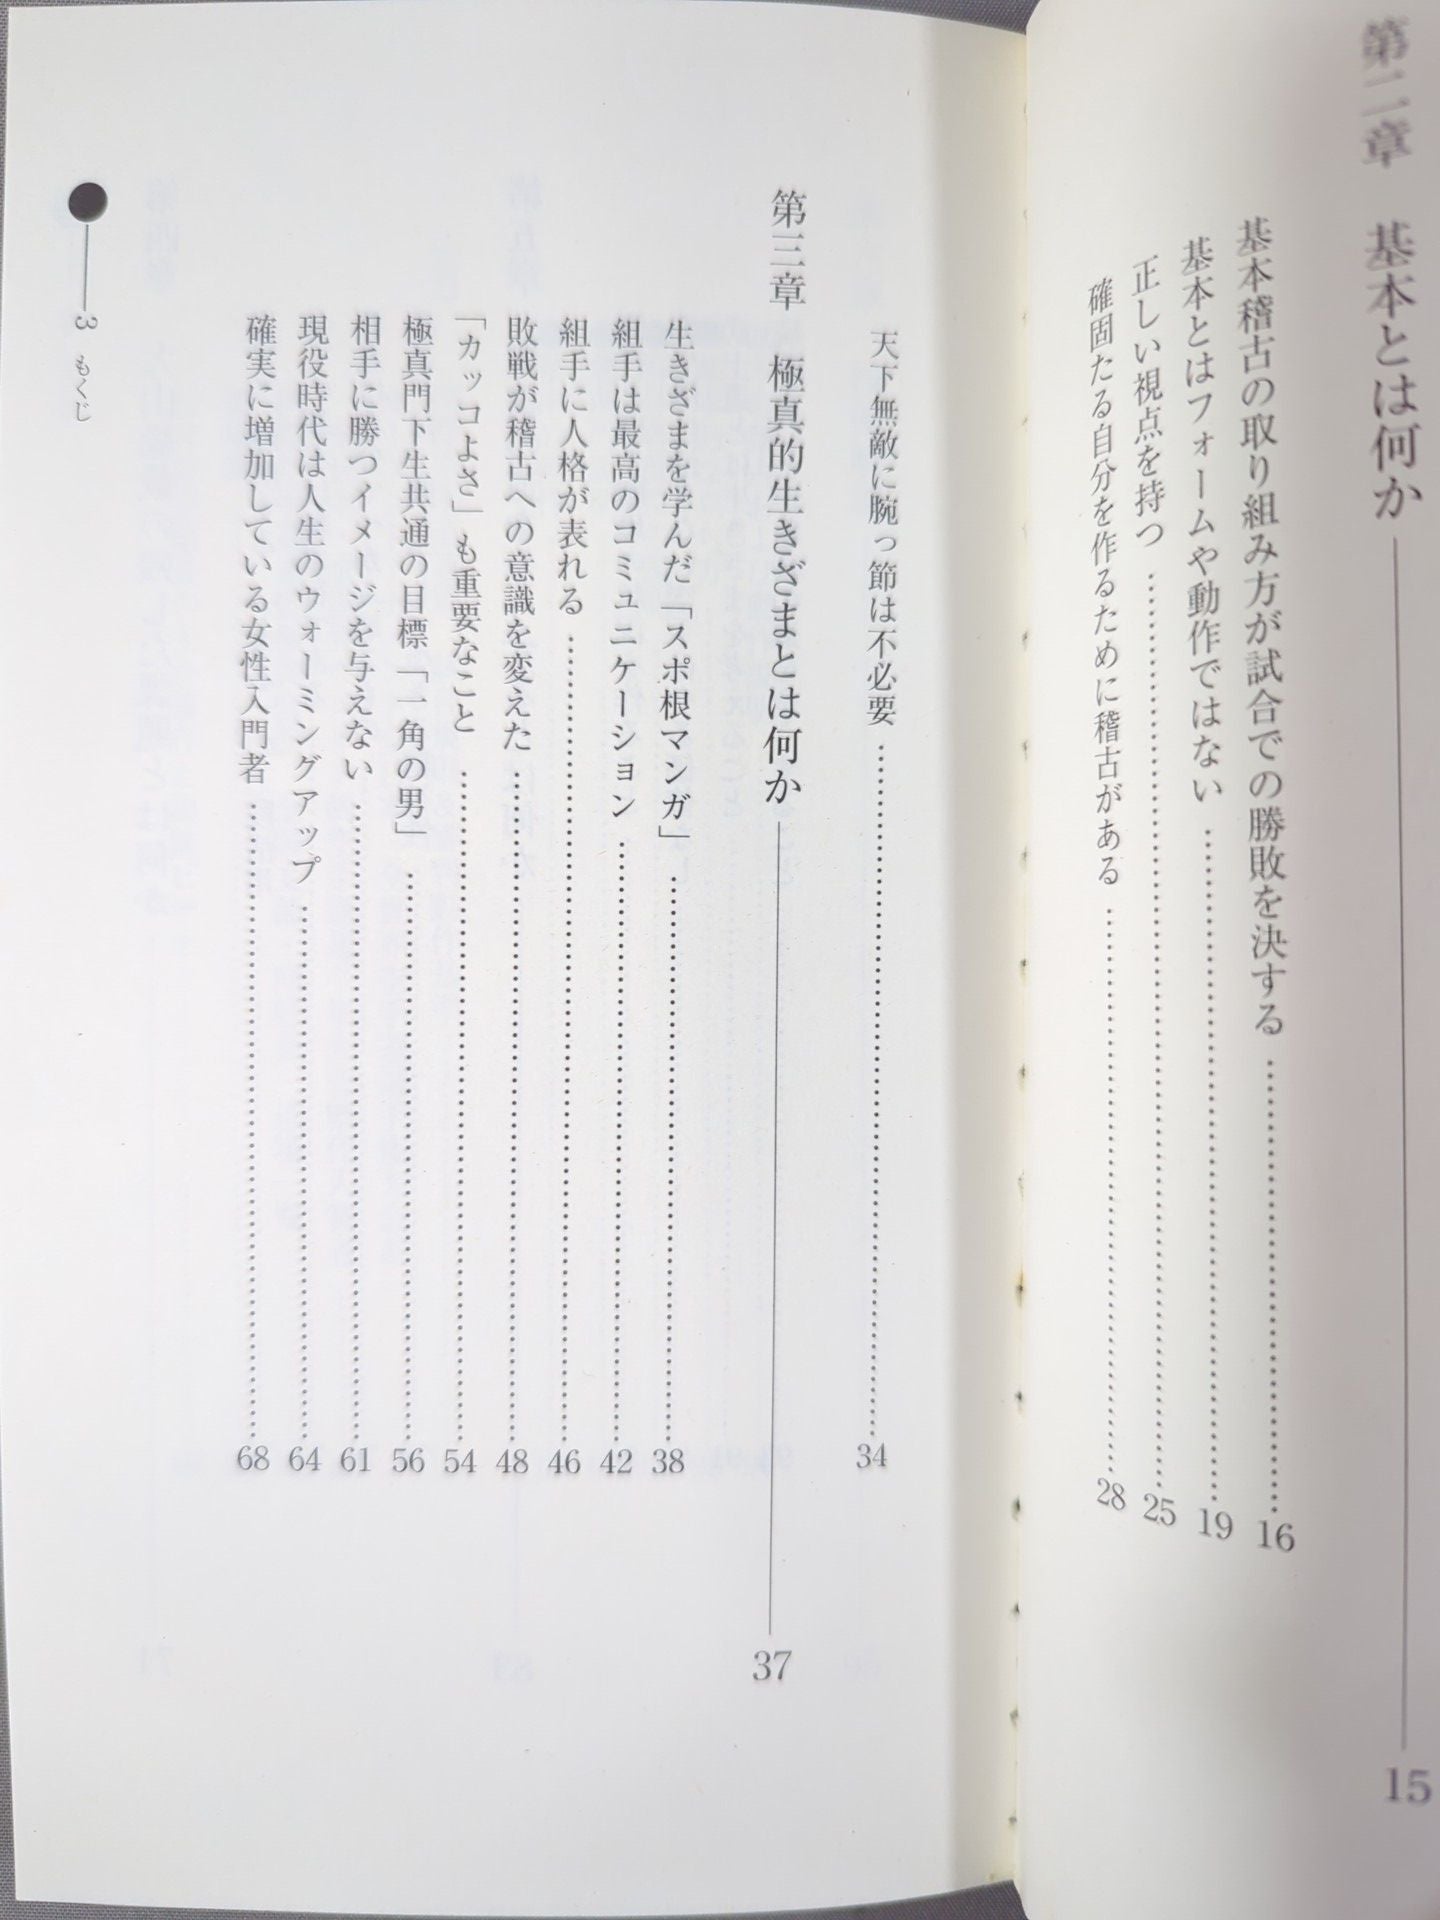 第二章　基本とは何か 15
基本稽古の取り組み方が試合での勝敗を決する 16
基本とはフォームや動作ではない 19
正しい視点を持つ 25
確固たる自分を作るために稽古がある 28
天下無敵に腕っ節は不必要 34
第三章　極真的生きざまとは何か 37
生きざまを学んだ「スポ根マンガ」 38
組手は最高のコミュニケーション 42
組手に人格が表れる 46
敗戦が稽古への意識を変えた 48
「カッコよさ」も重要なこと 54
極真門下生共通の目標「一角の男」 56
相手に勝つイメージを与えない 61
現役時代は人生のウォーミングアップ 64
確実に増加している女性入門者 68
3 もくじ